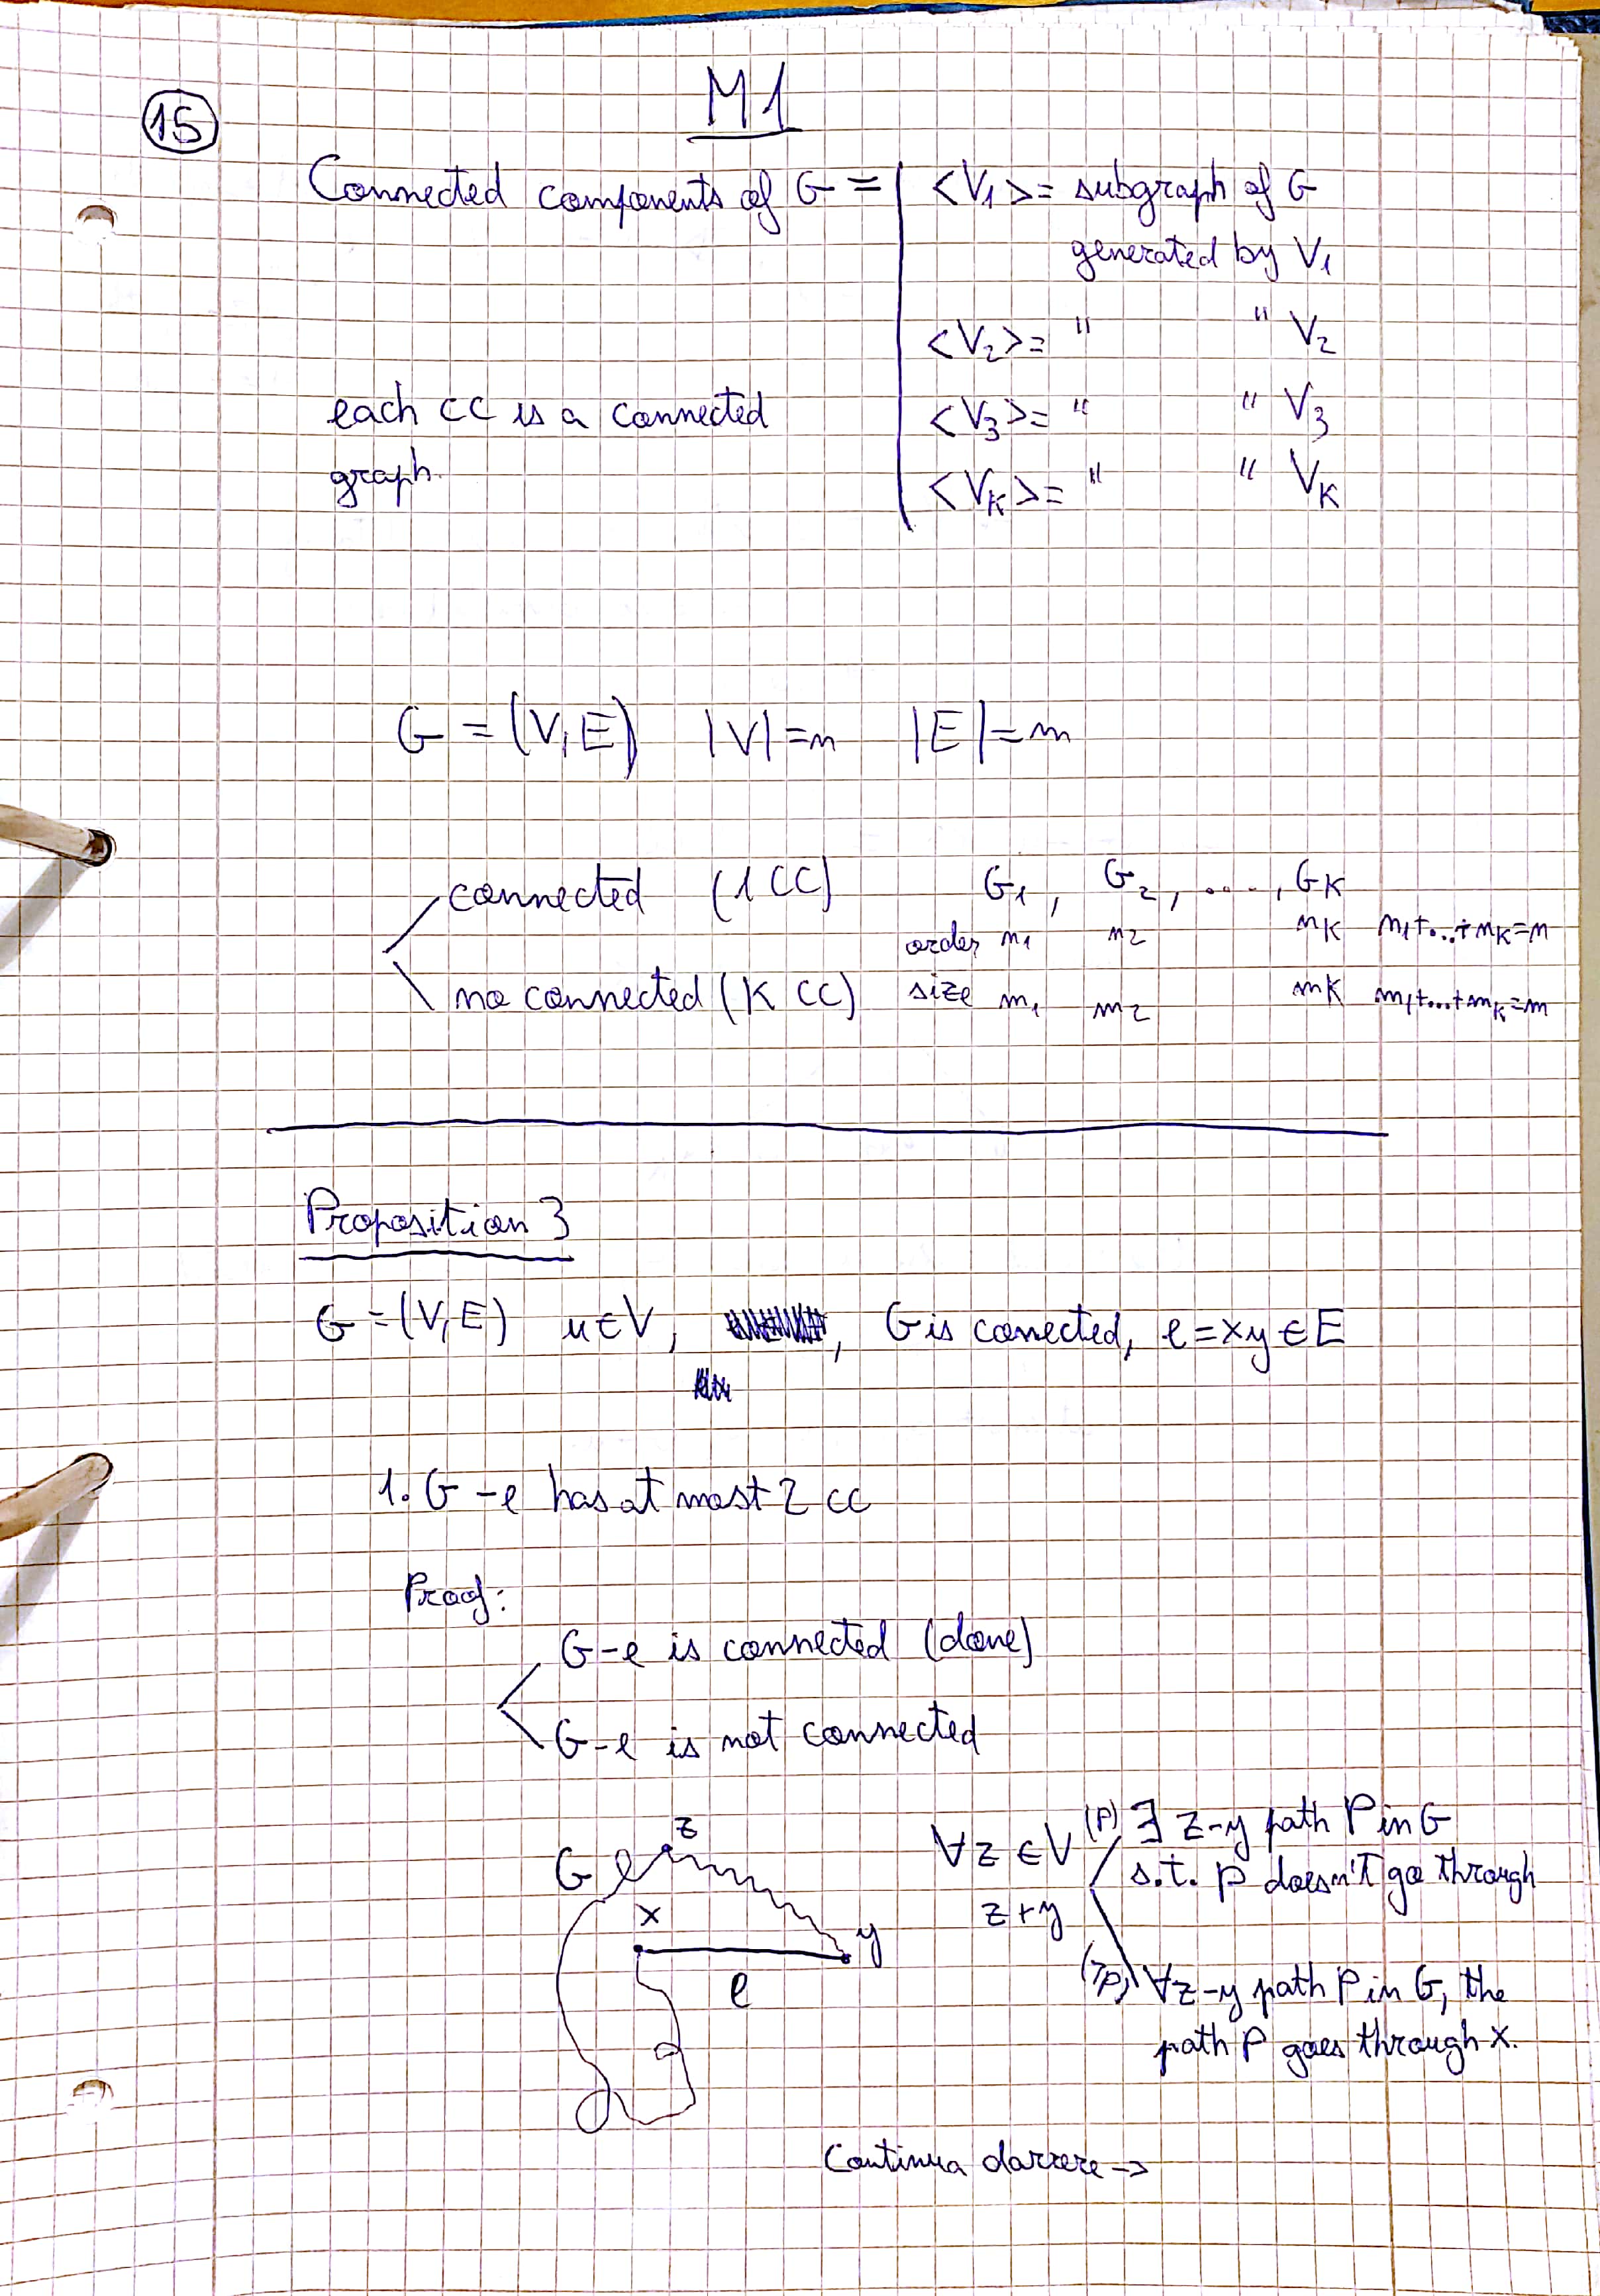 15
M1
Connected components of G = <V1> = subgraph of G
generated by V1
<V2> = " " V2
each CC is a connected <V3> = " " V3
graph. <VK> = " " VK
G = (V,E) |V|=n |E|=m
connected (1 CC) G1, G2, ...., GK
order n1 n2 nK n1+...+nK=n
no connected (K CC) size m1 m2 mK m1+...+mK=m
Proposition 3
G=(V,E) u∈V, , G is conected, e=xy∈E
1. G-e has at most 2 cc
Proof:
G-e is connected (done)
G-e is not connected
G z ∀z∈V (P) ∃ z-y path P in G
s.t. P doesn't go through
x y z+y
e (7P) ∀z-y path P in G, the
path P goes through x.
Continua darrere →